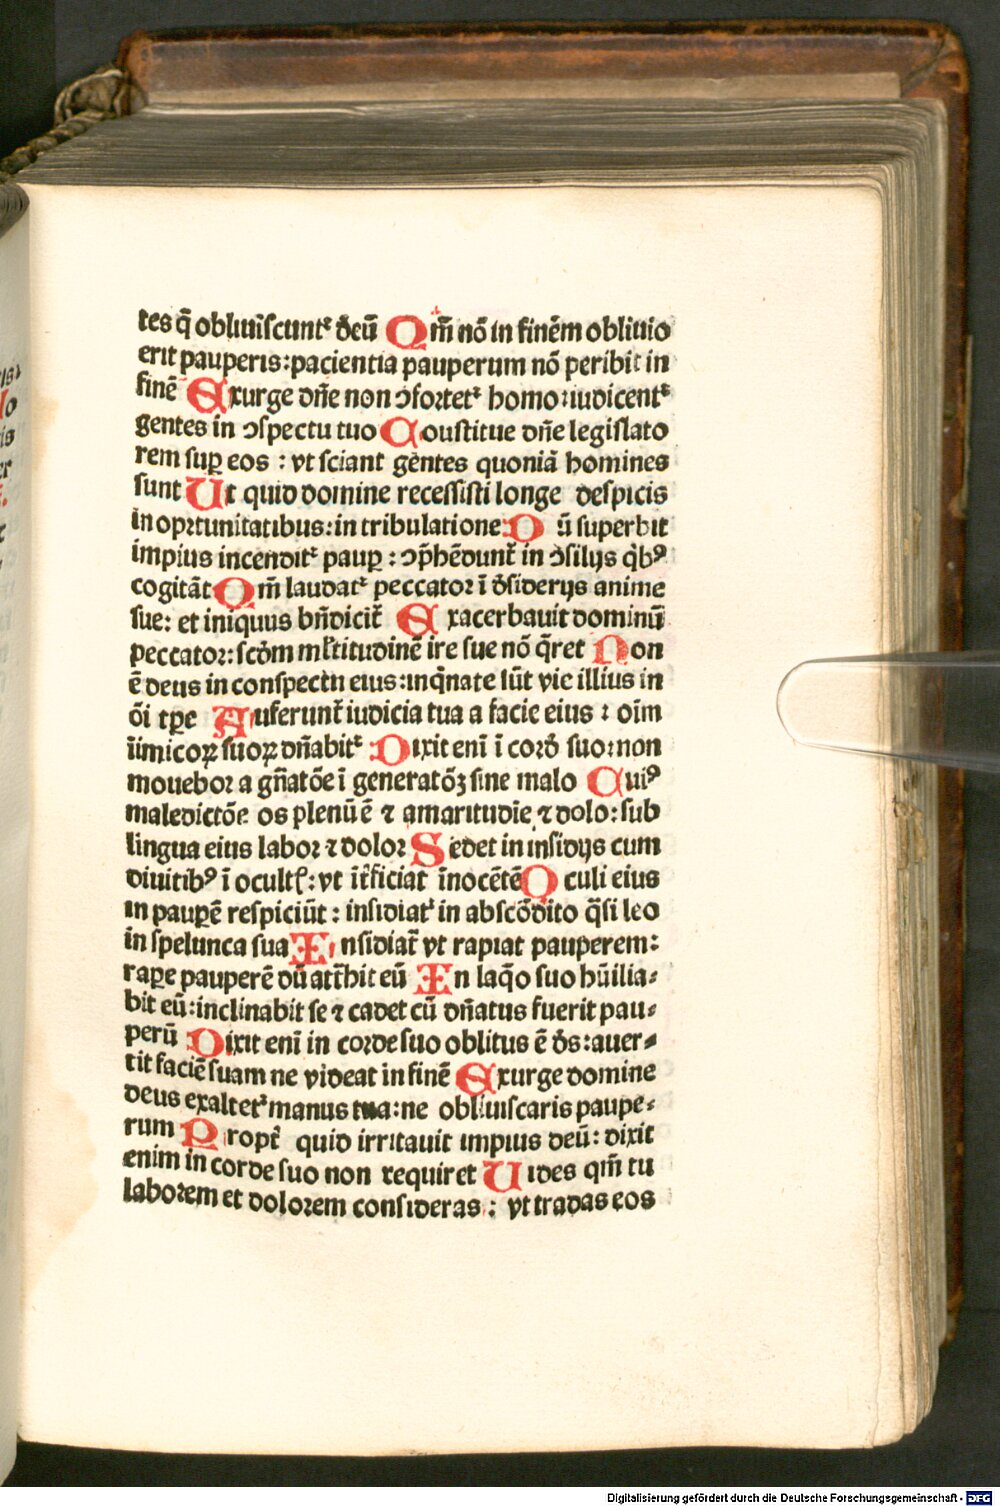 tes q̄ obliuiscunt᷑ deū Qm̄ nō in finēm obliuio
erit pauperis:pacientia pauperum nō peribit in
finē Exurge dn̄e non ↄfortet᷑ homo:iudicent᷑
gentes in ↄspectu tuo Coustitue dn̄e legislato
rem suꝑ eos : vt sciant gentes quoniā homines
sunt Ut quid domine recessisti longe despicis
in oportunitatibus:in tribulatione Dū superbit
impius incendit᷑ pauꝑ : ↄp̄hēdunt᷑ in ↄ̄silijs q̄bꝰ
cogitāt Qm̄ laudat᷑ peccator ī d̄siderijs anime
sue: et iniquus bn̄dicit᷑ Exacerbauit dominū
peccator:scd̄m ml̄titudinē ire sue nō q̄ret Non
ē deus in conspectu eius:inq̄nate sūt vie illius in
ōi tꝑe Auferunt᷑ iudicia tua a facie eius : oīm
īimicoꝝ suoꝝ dn̄abit᷑ Dixit enī ī cord̄ suo:non
mouebor a gn̄atōe ī generatōꝫ sine malo Cuiꝰ
maledictōe os plenū ē ⁊ amaritudīe ⁊ dolo:sub
lingua eius labor ⁊ dolor Sedet in insidijs cum
diuitibꝰ ī ocultꝭ:vt īt᷑ficiat īnocētē Oculi eius
in pauꝑē respiciūt : insidiat᷑ in abscōdito q̄si leo
in spelunca sua Insidiat᷑ vt rapiat pauperem:
raꝑe pauperē dū att᷑hit eū In laq̄o suo hūilia⸗
bit eū:inclinabit se ⁊ cadet cū dn̄atus fuerit pau⸗
perū Dixit enī in corde suo oblitus ē d̄s:auer⸗
tit faciē suam ne videat in finē Exurge domine
deus exaltet᷑ manus tua:ne obliuiscaris paupe⸗
rum Propt᷑ quid irritauit impius deū: dixit
enim in corde suo non requiret Uides qm̄ tu
laborem et dolorem consideras : vt tradas eos
Digitalisierung gefördert durch die Deutsche Forschungsgemeinschaft - DFG